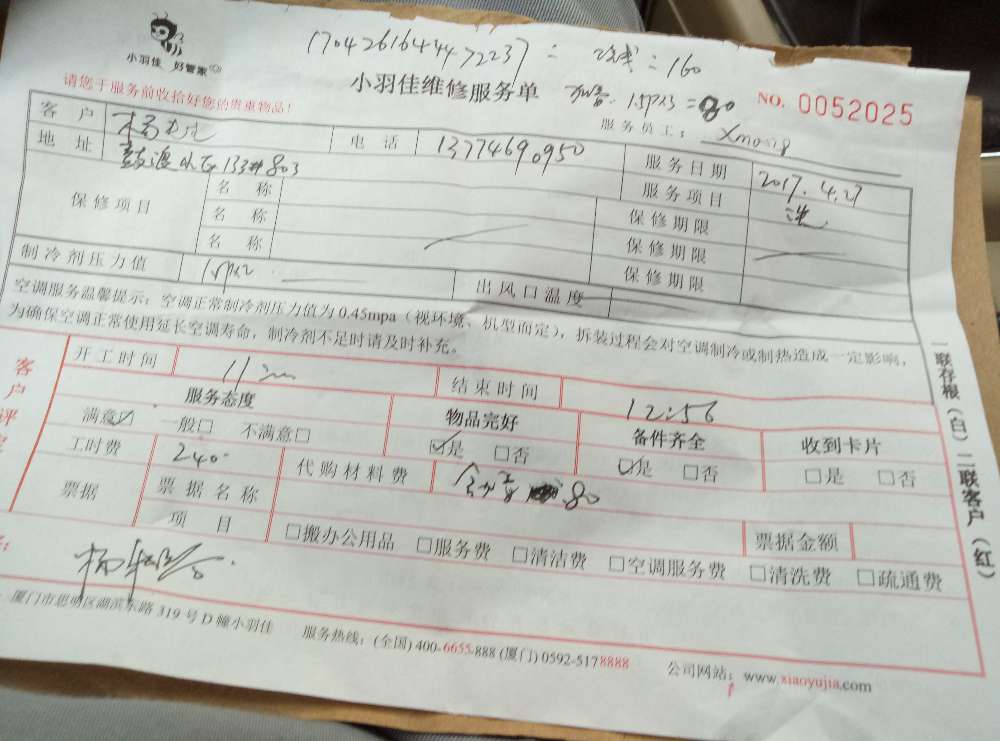 17042616444472237 = 2线 = 160
小羽佳 好管家
小羽佳维修服务单
1.5PX3 = 80
NO. 0052025
请您于服务前收拾好您的贵重物品!
服务员工:
客户 杨 电话 13774690950 服务日期 2017.4.27
地址 133#803 服务项目 洗
保修项目 名称 保修期限
名称 保修期限
名称 保修期限
制冷剂压力值 出风口温度
空调服务温馨提示:空调正常制冷剂压力值为0.45mpa(视环境、机型而定),拆装过程会对空调制冷或制热造成一定影响,
为确保空调正常使用延长空调寿命,制冷剂不足时请及时补充。
开工时间 结束时间 12:56
服务态度 物品完好 备件齐全 收到卡片
满意☑ 一般□ 不满意□ ☑是 □否 ☑是 □否 □是 □否
工时费 240 代购材料费 80
票据 票据名称 票据金额
项目 □搬办公用品 □服务费 □清洁费 □空调服务费 □清洗费 □疏通费
厦门市思明区湖滨东路319号D幢小羽佳 服务热线:(全国)400-6655-888 (厦门)0592-5178888 公司网站:www.xiaoyujia.com
一联存根(白)二联客户(红)